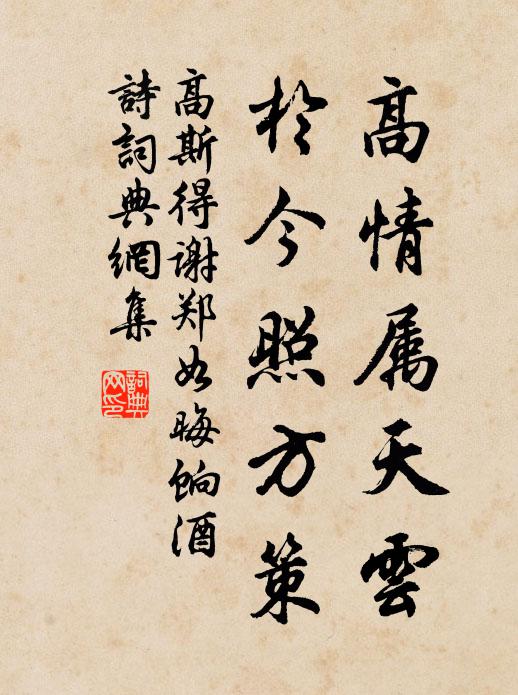 高情属天雲
於今照方策
高斯得谢郑如晦饷酒
詩詞典網集
詞典網印